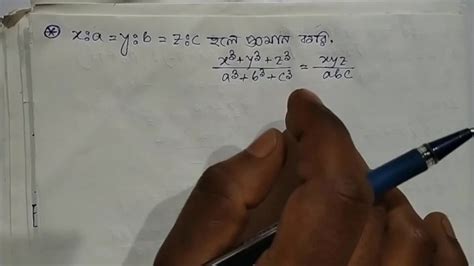 * x:a = y:b = z:c হলে প্রমাণ করি.
x³+y³+z³/a³+b³+c³ = xyz/abc